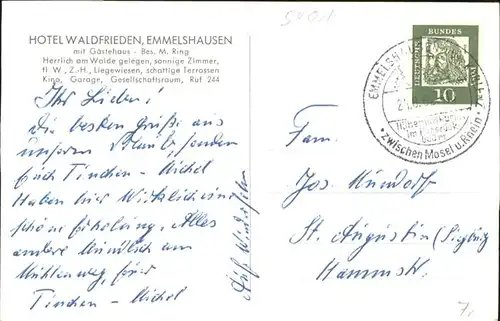 HOTEL WALDFRIEDEN, EMMELSHAUSEN
mit Gästehaus - Bes. M. Ring
Herrlich am Walde gelegen, sonnige Zimmer,
fl W., Z.-H., Liegewiesen, schattige Terrassen
Kino, Garage, Gesellschaftsraum, Ruf 244
Ihr Lieben!
Die besten Grüße aus
unserem Urlaub senden
Euch Tinchen - Michel
Haben hier Wirklich eine
schöne Erholung, Alles
andere Mündlich am
Mühlenweg, Eure
Tinchen - Michel
Auf Wiedersehen
5401
DEUTSCHE BUNDESPOST
10
EMMELSHAUSEN
Höhenluftkurort
im
zwischen Mosel u. Rhein
Fam.
Jos. Mundorf
St. Augustin (Siegburg
Hammstr.
7,